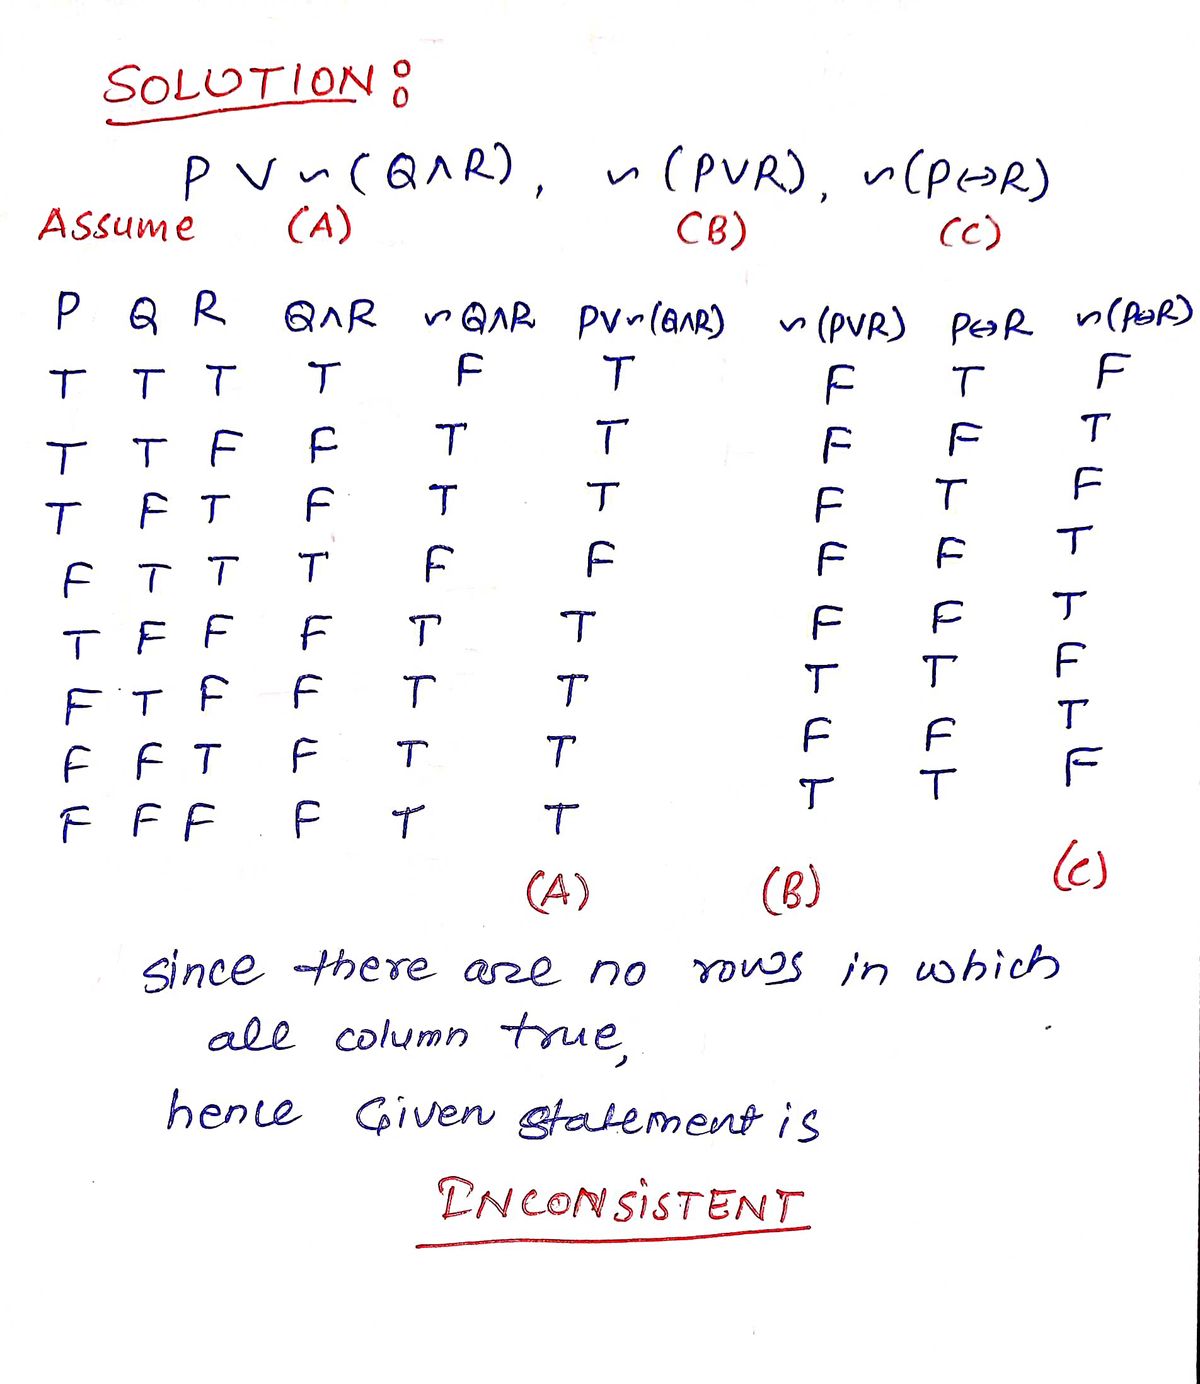 SOLUTION:
P ∨ ~(Q∧R), ~(P∨R), ~(P↔R)
Assume (A) (B) (C)
P Q R Q∧R ~Q∧R P∨~(Q∧R) ~(P∨R) P↔R ~(P↔R)
T T T T F T F T F
T T F F T T F F T
T F T F T T F T F
F T T T F F F F T
T F F F T T F F T
F T F F T T T T F
F F T F T T F F T
F F F F T T T T F
(A) (B) (C)
since there are no rows in which
all column true,
hence Given statement is
INCONSISTENT